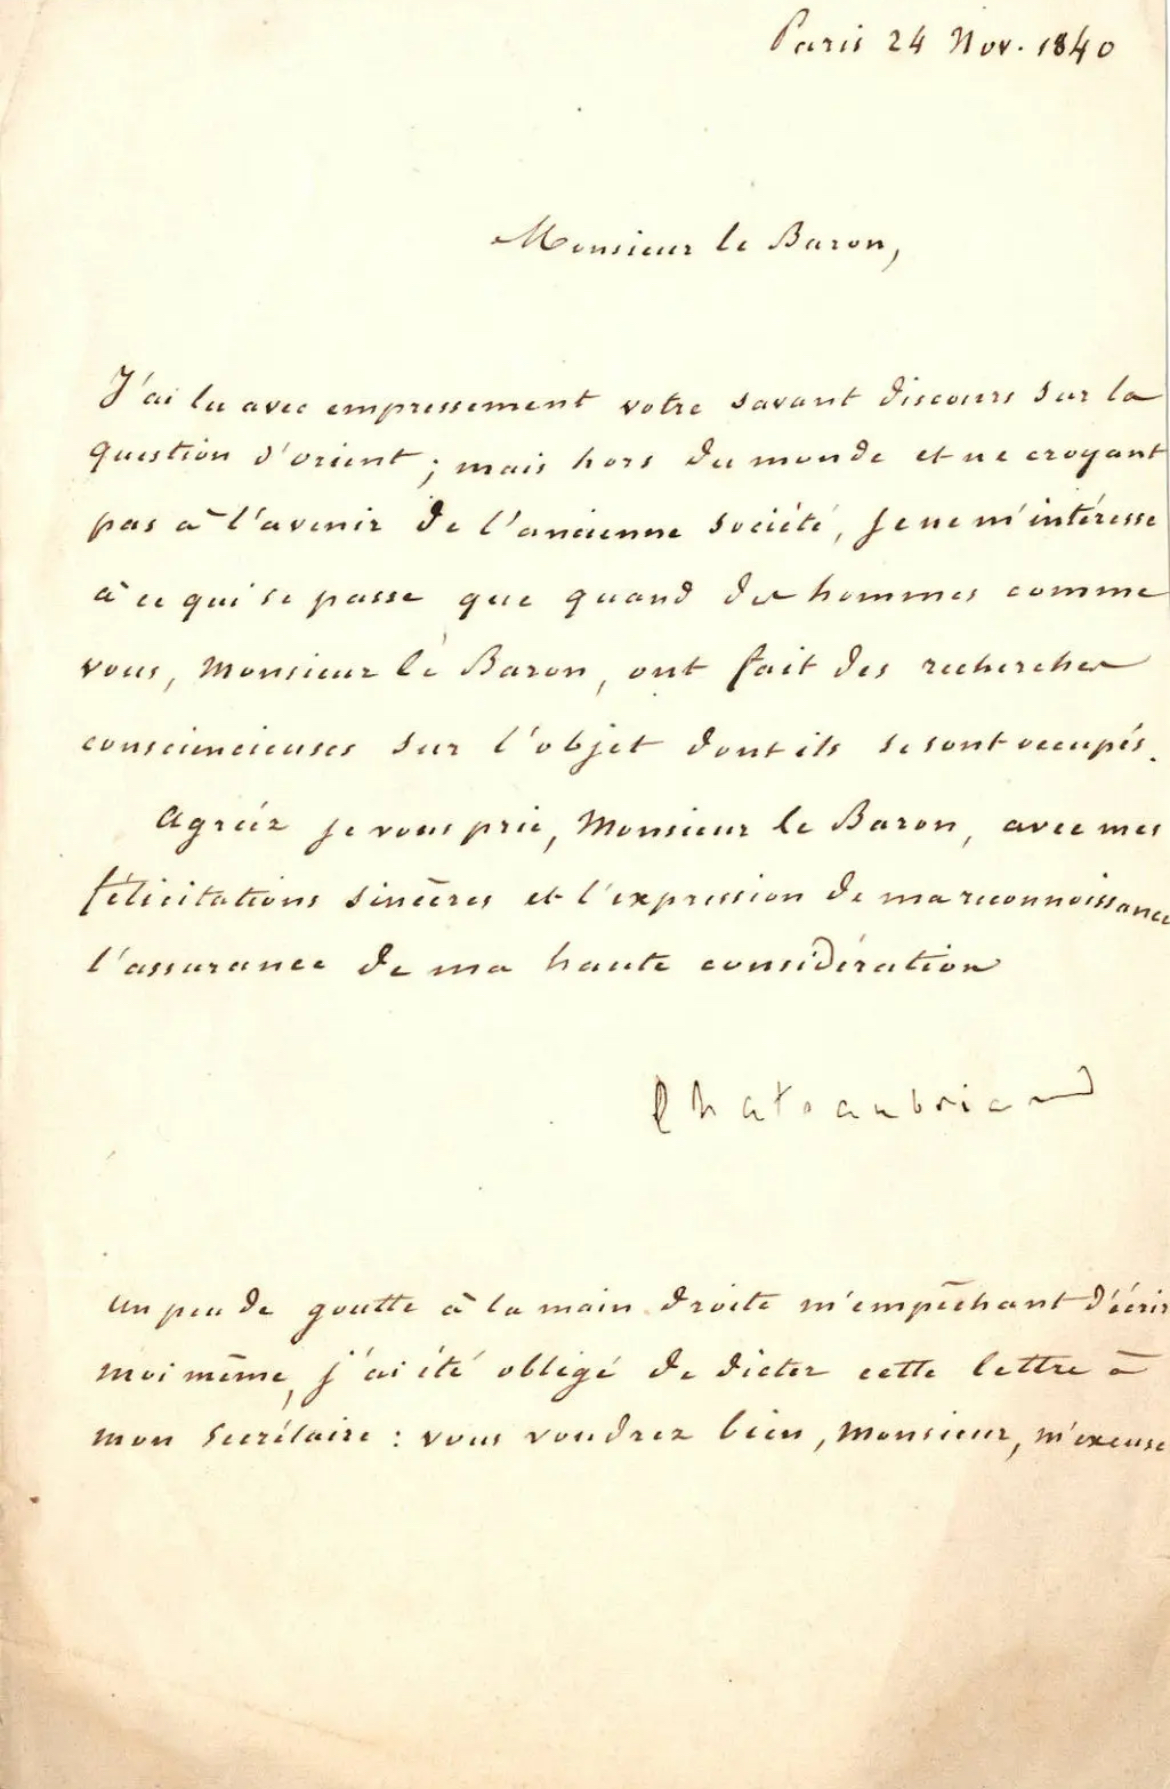 Paris 24 Nov. 1840
Monsieur le Baron,
J'ai lu avec empressement votre savant discours sur la
question d'orient ; mais hors du monde et ne croyant
pas à l'avenir de l'ancienne société, je ne m'intéresse
à ce qui se passe que quand des hommes comme
vous, Monsieur le Baron, ont fait des recherches
consciencieuses sur l'objet dont ils se sont occupés.
Agréez je vous prie, Monsieur le Baron, avec mes
félicitations sincères et l'expression de ma reconnoissance
l'assurance de ma haute considération
Chateaubriand
Un peu de goutte à la main droite m'empêchant d'écrir
moi même, j'ai été obligé de dicter cette lettre à
mon secrétaire : vous voudrez bien, Monsieur, m'excuse